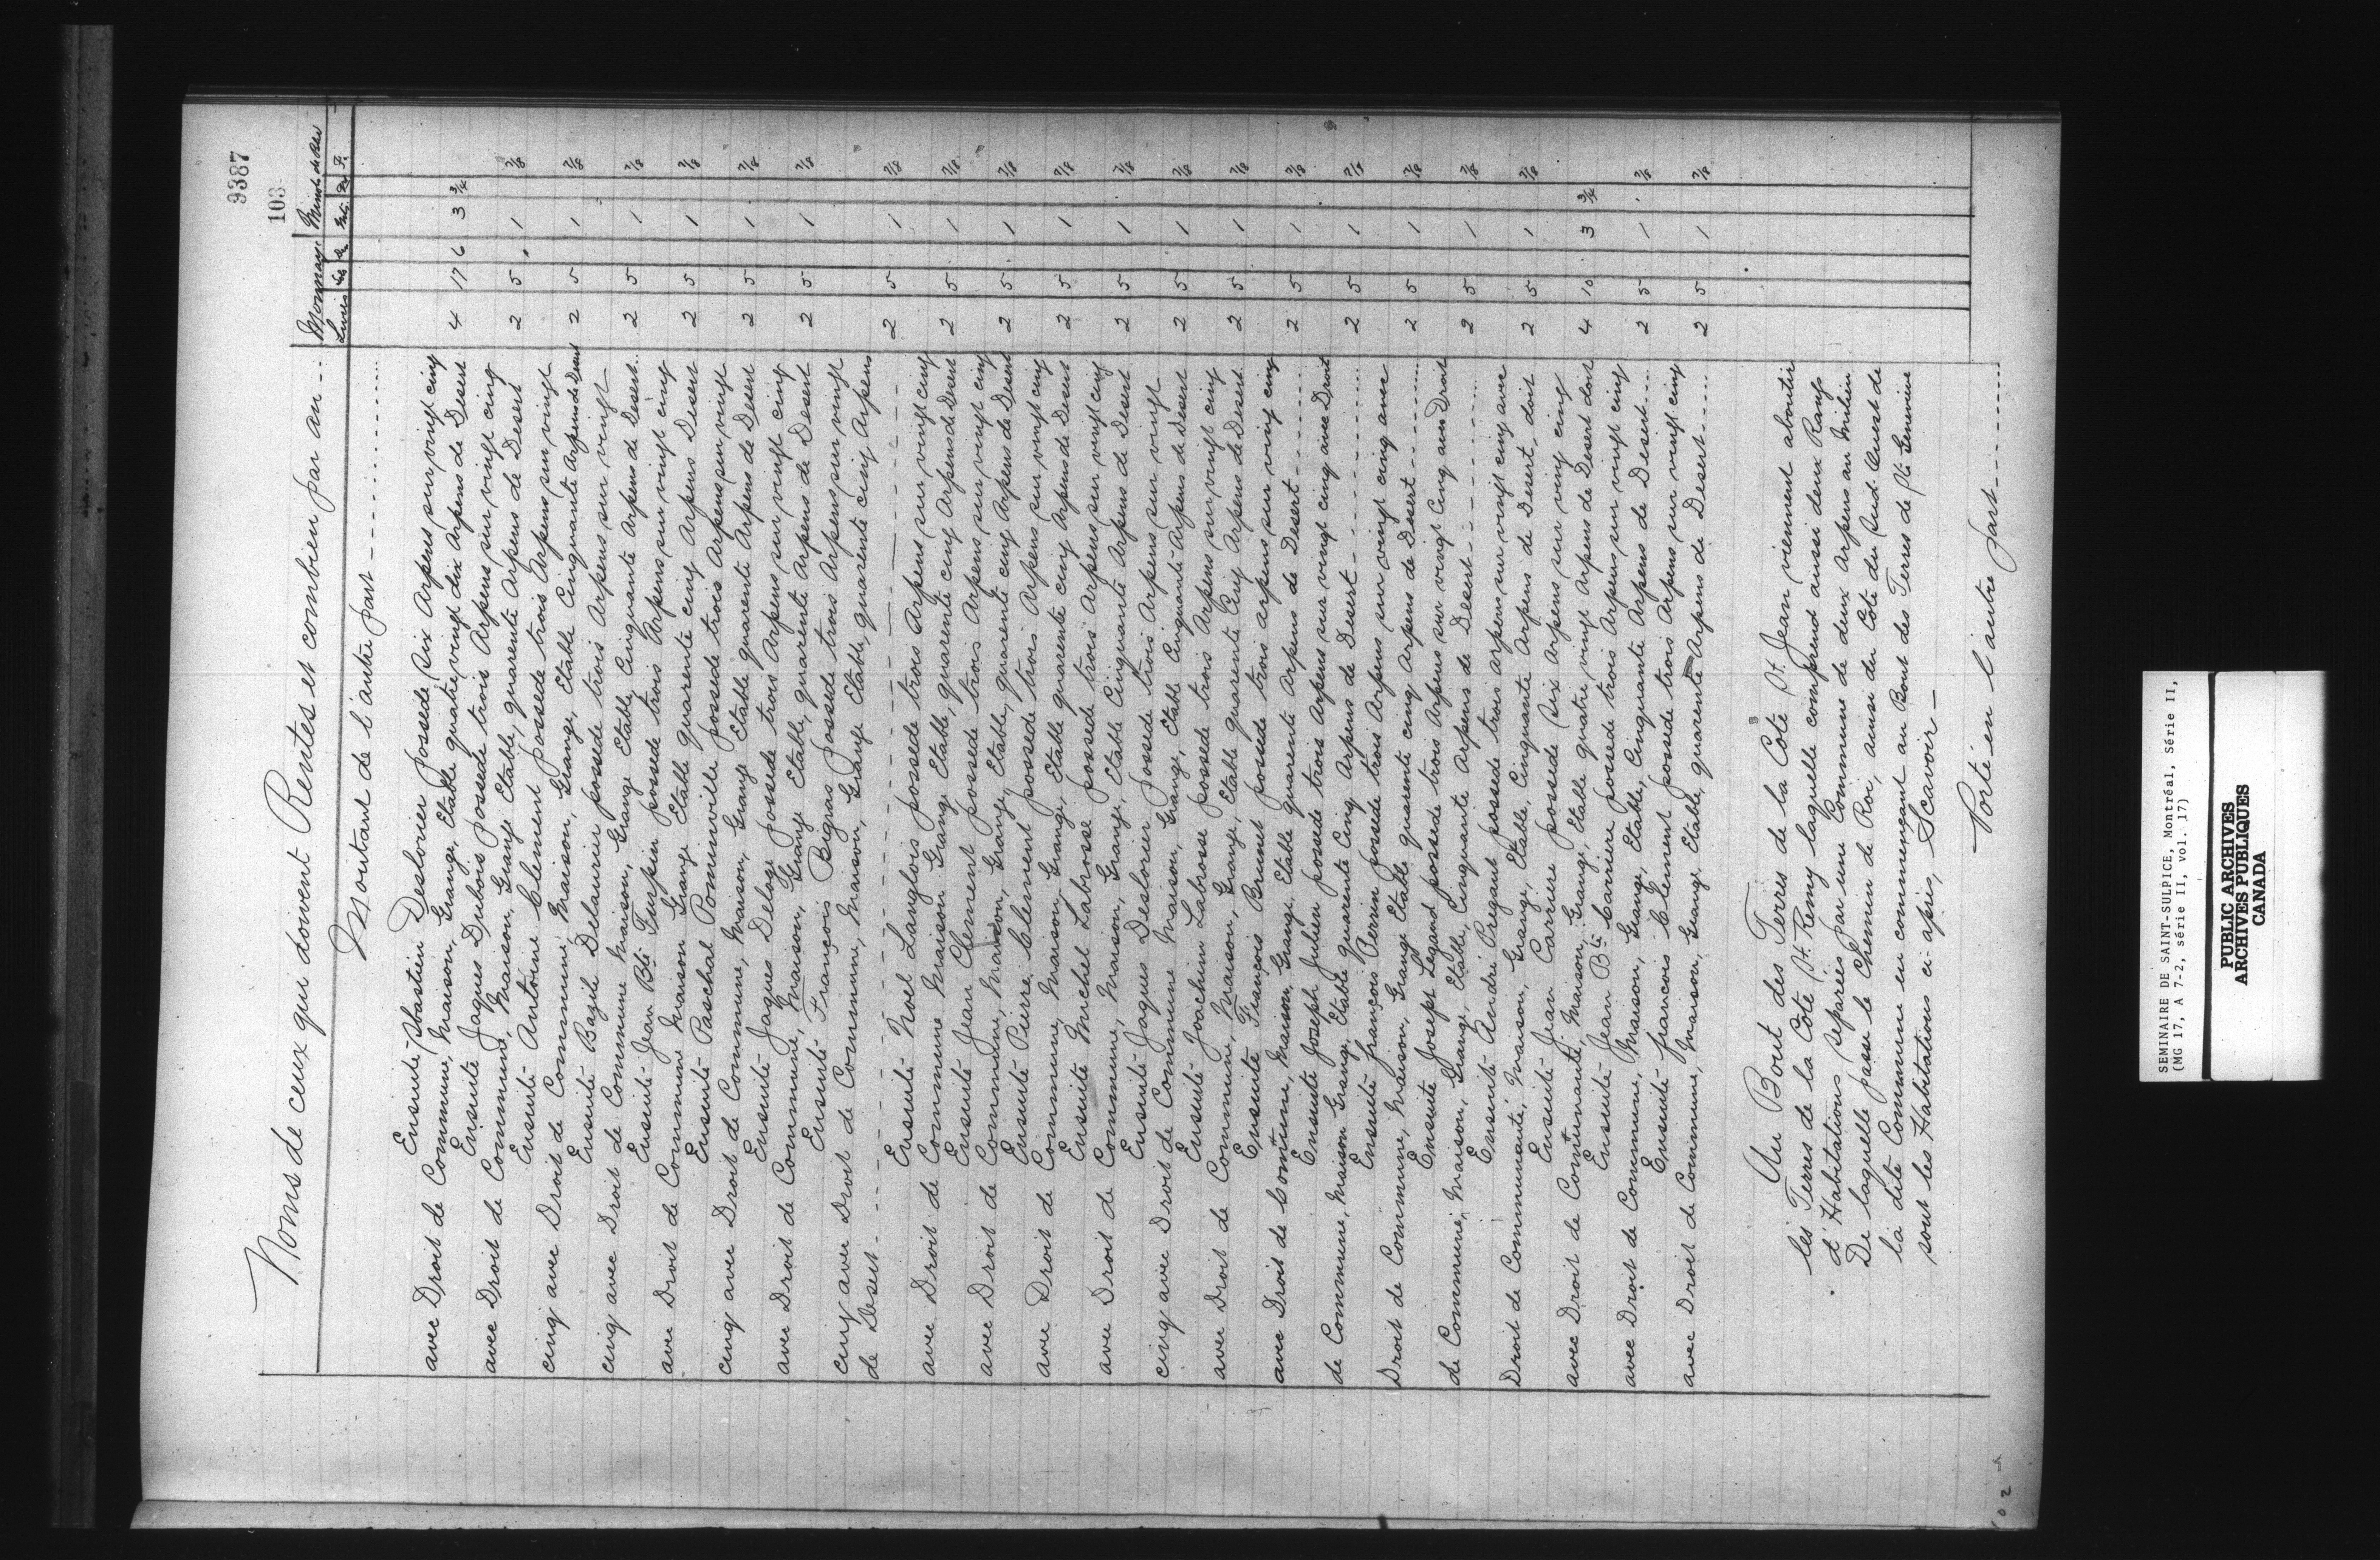 9387
103
Nons de ceux qui doivent Rentes et combien par an
Monnaye Minots de Bled
Livres
Montant de l'autre part
Ensuite Sbastien Deslorier possede Six Arpens sur vingt cinq
avec Droit de Commune, Maison, Grange, Etable quatre vingt dix Arpens de Desert 4 17 6 3 3/4
Ensuite Jaques Dubois possede trois Arpens sur vingt cinq
avec Droit de Commune, Maison, Grange Etable, quarente Arpens de Desert 2 5 1 7/8
Ensuite Antoine Clement possede trois Arpens sur vingt
cinq avec Droit de Commune, Maison, Grange, Etable Cinquante Arpens de Desert 2 5 1 7/8
Ensuite Bazil Delaunier possede trois Arpens sur vingt
cinq avec Droit de Commune Maison, Grange Etable, Cinquante Arpens de Desert 2 5 1 7/8
Ensuite Jean Bte Turpin possede trois Arpens sur vingt cinq
avec Droit de Commune Maison Grange Etable quarente cinq Arpens Desert 2 5 1 7/8
Ensuite Paschal Pominville possede trois Arpens sur vingt
cinq avec Droit de Commune, Maison, Grange Etable quarente Arpens de Desert 2 5 1 7/8
Ensuite Jaques Delage possede trois Arpens sur vingt cinq
avec Droit de Commune, Maison, Grange Etable, quarente Arpens de Desert 2 5 1 7/8
Ensuite François Bigras possede trois Arpens sur vingt
cinq avec Droit de Commune, Maison, Grange Etable, quarente cinq Arpens
de Desert 2 5 1 7/8
Ensuite Noel Langlois possede trois Arpens sur vingt cinq
avec Droit de Commune Maison Grange Etable, quarente cinq Arpens de Desert 2 5 1 7/8
Ensuite Jean Clement possede trois Arpens sur vingt cinq
avec Droit de Commune, Maison, Grange, Etable, quarente cinq Arpens de Desert 2 5 1 7/8
Ensuite Pierre Clement possede trois Arpens sur vingt cinq
avec Droit de Commune, Maison, Grange, Etable quarente cinq Arpens de Desert 2 5 1 7/8
Ensuite Michel Labrosse possede trois Arpens sur vingt cinq
avec Droit de Commune, Maison, Grange, Etable Cinquante Arpens de Desert 2 5 1 7/8
Ensuite Jaques Deslorier possede trois Arpens sur vingt
cinq avec Droit de Commune Maison, Grange, Etable Cinquante Arpens de Desert 2 5 1 7/8
Ensuite Joachim Labrosse possede trois Arpens sur vingt cinq
avec Droit de Commune, Maison, Grange, Etable quarente Cinq Arpens de Desert 2 5 1 7/8
Ensuite François Brunet possede trois arpens sur vingt cinq
avec Droit de Commune, Maison, Grange, Etable quarente Arpens de Desert 2 5 1 7/8
Ensuite Joseph Julien possede trois Arpens sur vingt cinq avec Droit
de Commune, Maison Grange, Etable quarente Cinq Arpens de Desert 2 5 1 7/8
Ensuite françois Perrin possede trois Arpens sur vingt cinq avec
Droit de Commune, Maison, Grange Etable quarente cinq Arpens de Desert 2 5 1 7/8
Ensuite Josept Legand possede trois Arpens sur vingt Cinq avec Droit
de Commune, Maison, Grange, Etable, Cinquante Arpens de Desert 2 5 1 7/8
Ensuite André Pregant possede trois arpens sur vingt cinq avec
Droit de Communauté, Maison, Grange, Etable, Cinquante Arpens de Desert, doit 2 5 1 7/8
Ensuite Jean Carriere possede Six Arpens sur vingt cinq
avec Droit de Communauté, Maison, Grange, Etable quatre vingt Arpens de Desert doit 4 10 3 3/4
Ensuite Jean Bte Carriere possede trois Arpens sur vingt cinq
avec Droit de Commune, Maison, Grange, Etable, Cinquante Arpens de Desert 2 5 1 7/8
Ensuite francois Clement possede trois Arpens sur vingt cinq
avec Droit de Commune, Maison, Grange Etable, quarente Arpens de Desert 2 5 1 7/8
Au Bout des Terres de la Côte St. Jean viennent aboutir
les Terres de la Côte St. Remy laquelle comprend aussi deux Rangs
d'Habitations separées par une Commune de deux Arpens au Milieu
De laquelle passe le Chemin de Roi, ainsi du Coté du Sud Ouest de
la dite Commune en commençant au Bout des Terres de Ste Genevieve
sont les Habitations ci apres, Scavoir
Porté en l'autre part
SEMINAIRE DE SAINT-SULPICE, Montréal, Série II,
(MG 17, A 7-2, série II, vol. 17)
PUBLIC ARCHIVES
ARCHIVES PUBLIQUES
CANADA